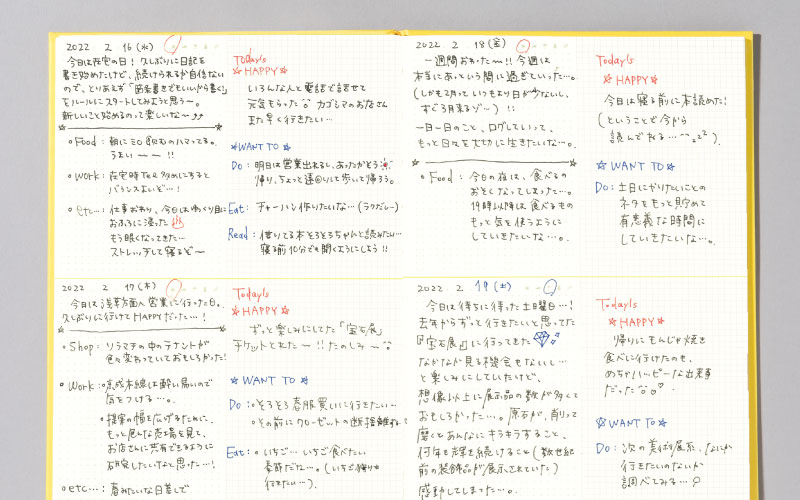 2022 2 16 (水)
今日は在宅の日！久しぶりに日記を
書き始めたけど、続けられるか自信ない
ので、とりあえず「箇条書きでもいいから書く」
をルールにスタートしてみようと思う〜。
新しいこと始めるのって楽しいな〜
Food : 朝にミロ飲むのハマってる。
うまい ー ー !!
Work : 在宅時Tea多めにすると
バランスよいど…！
etc… : 仕事おわり、今日はゆっくり目に
おふろに浸った
もう眠くなってきた…
ストレッチして寝るど〜
Today's
☆HAPPY☆
いろんな人と電話で話せて
元気もらった カゴシマのお店さん
また早く行きたい…
☆WANT TO☆
Do : 明日は営業出れるし、あったかそう
帰り、ちょっと遠回りして歩いて帰ろう。
Eat : チャーハン作りたいな…(ラクだし〜)
Read : 借りてる本そろそろちゃんと読みたい…
寝る前10分でも開くようにしよう!!
2022. 2 17 (木)
今日は浅草方面へ営業に行けた日。
久しぶりに行けてHAPPYだった…！
Shop : ソラマチの中のテナントが
色々変わっていておもしろかった！
Work : 京成本線は酔い易いので
気をつける…。
提案の幅を広げるために、
もっと色んな売場を見て、
お店さんに共有できるように
研究したいなと思った…！
etc… : 春みたいな日差しで
Today's
☆HAPPY☆
ずっと楽しみにしてた「宝石展」
チケットとれたー!! たのしみ〜
☆WANT TO☆
Do : そろそろ春服買いに行きたい…
その前にクローゼットの断捨離するー
Eat : いちご… いちご食べたい
季節だな…。(いちご狩り
行きたい…)
2022. 2 18 (金)
一週間おわった〜!! 今週は
本当にあっという間に過ぎていった…。
(しかも2月っていつもより日が少ないし、
すぐ3月来るゾ…) !!
一日一日のこと、ログしていって、
もっと日々を大切に生きたいな…。
Food : 今日の夜は、食べるの
おそくなってしまった…。
19時以降は食べるもの
もっと気を使うように
していきたいな…。
Today's
☆HAPPY☆
今日は寝る前に本読めた！
(ということで今から
読んでねる…zzz)
☆WANT TO
Do : 土日にやりたいことの
ネタをもっと貯めて
有意義な時間に
していきたいな…。
2022. 2 19 (土)
今日は待ちに待った土曜日…！
去年からずっと行きたいと思ってた
『宝石展』に行ってきた
なかなか見る機会もないし…
と楽しみにしていたけど、
想像以上に展示品の数が多くて
おもしろかった…。原石が、削って
磨くとあんなにキラキラすること、
何年も輝き続けること(数世紀
前の装飾品が展示されていた)
感動してしまった…。
Today's
☆HAPPY☆
帰りにもんじゃ焼き
食べに行けたのも、
めちゃハッピーな出来事
だった
☆WANT TO
Do : 次の美術展系、なにか
行きたいのないか
調べてみる…？